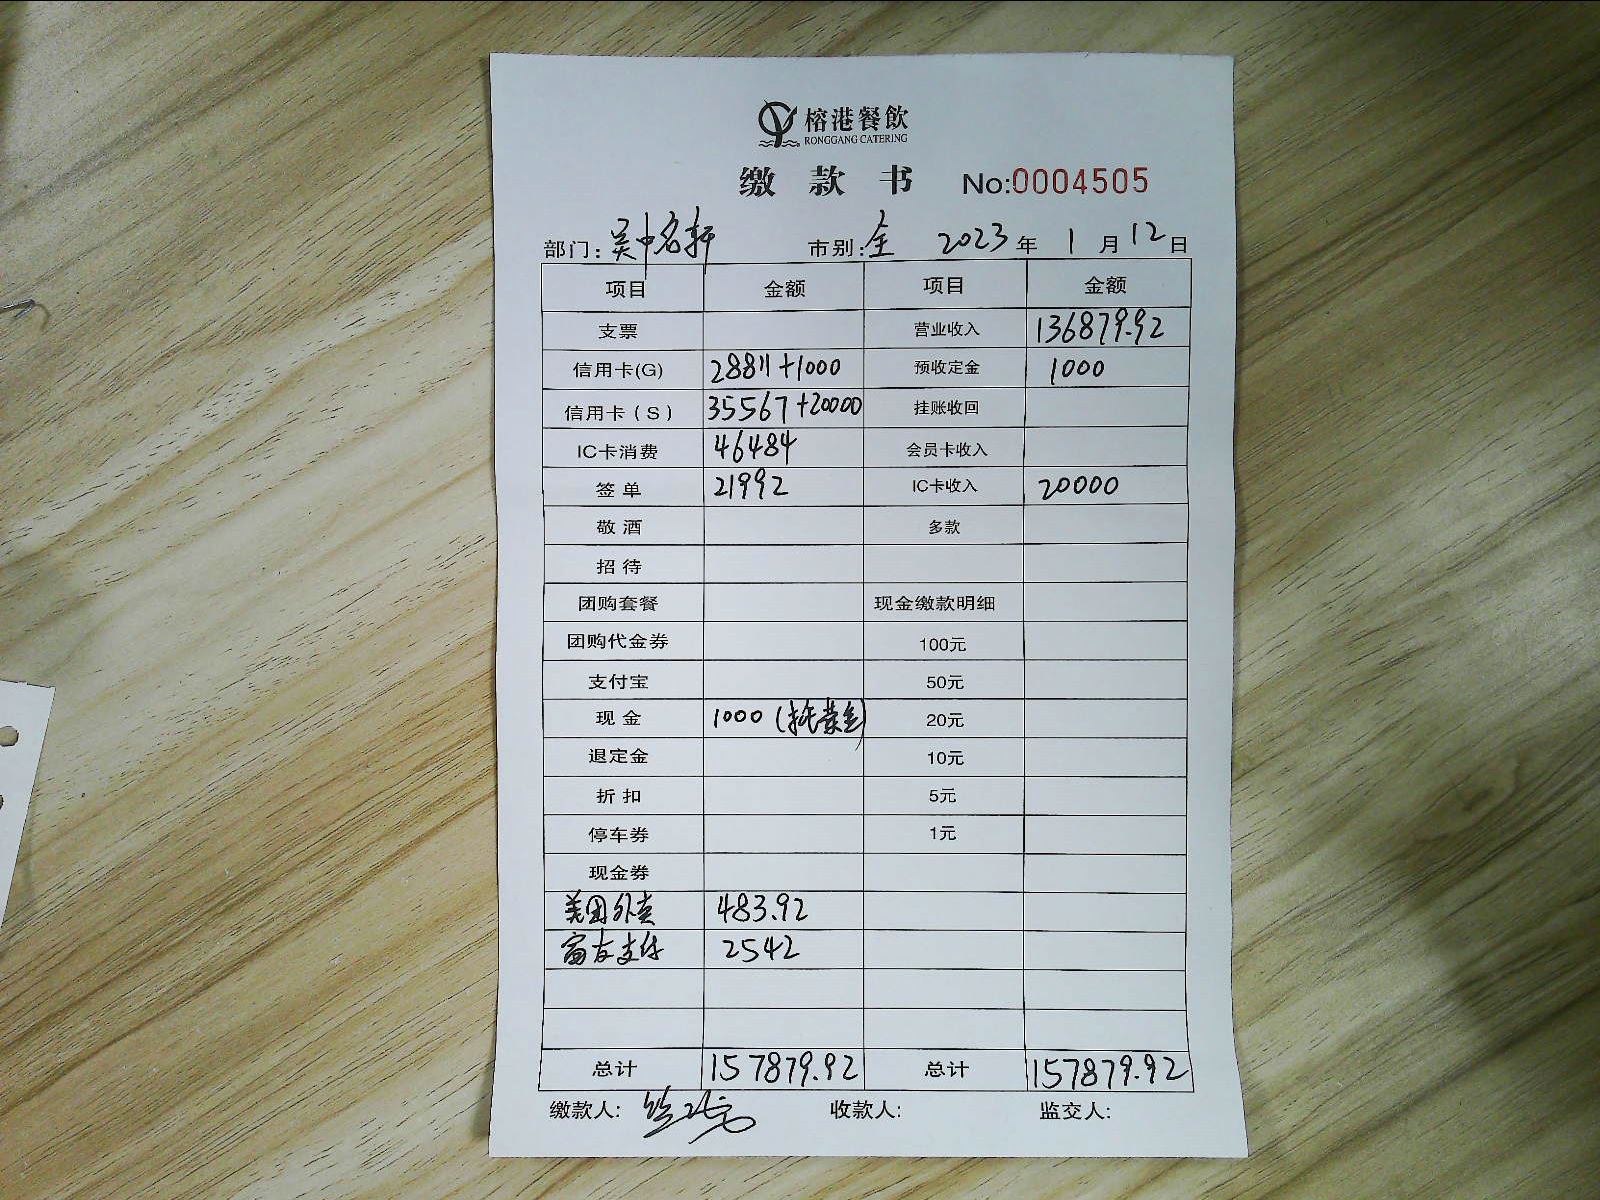 榕港餐飲
RONGGANG CATERING
缴款书 No:0004505
部门: 吴中名轩 市别: 全 2023 年 1 月 12 日
项目 金额 项目 金额
支票 营业收入 136879.92
信用卡(G) 28811+1000 预收定金 1000
信用卡(S) 35567+20000 挂账收回
IC卡消费 46484 会员卡收入
签单 21992 IC卡收入 20000
敬酒 多款
招待
团购套餐 现金缴款明细
团购代金券 100元
支付宝 50元
现金 1000 20元
退定金 10元
折扣 5元
停车券 1元
现金券
美团外卖 483.92
富友支付 2542
总计 157879.92 总计 157879.92
缴款人: 收款人: 监交人: